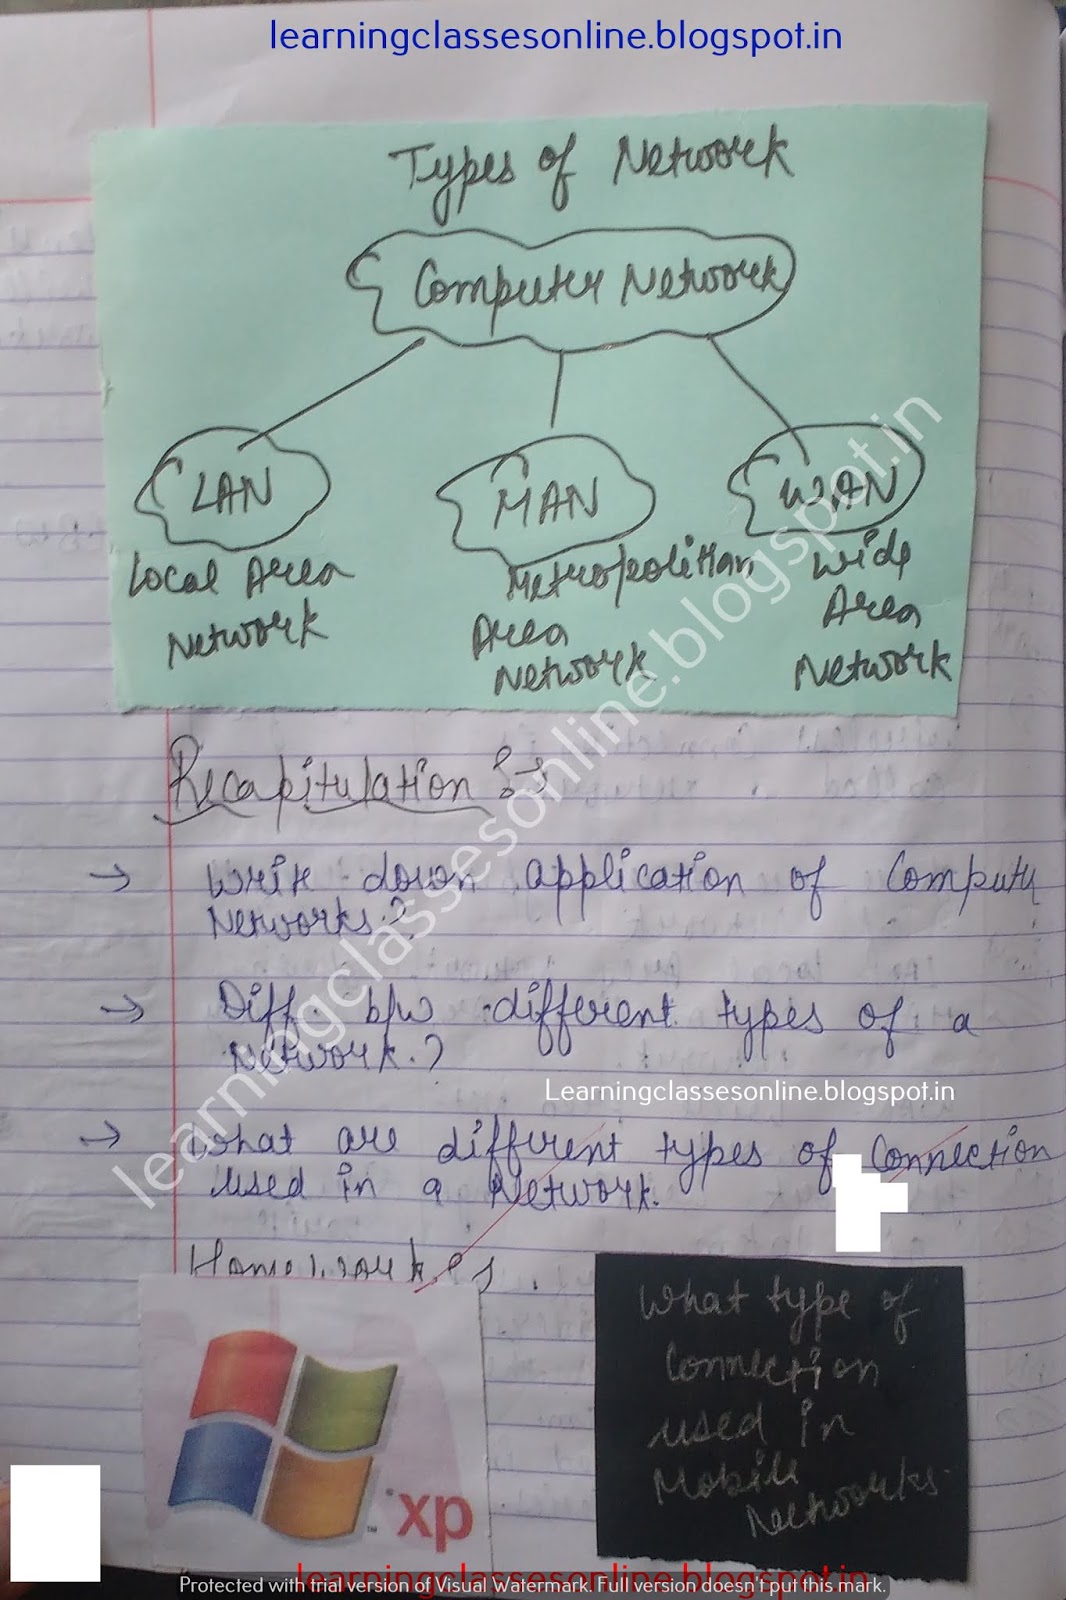 learningclassesonline.blogspot.in
Types of Network
Computer Network
LAN
MAN
WAN
Local Area
Network
Metropolitan
Area
Network
Wide
Area
Network
Recapitulation :→
→ Write down application of Computer
Networks.?
→ Diff. b/w different types of a
Network.?
Learningclassesonline.blogspot.in
→ What are different types of Connection
used in a Network.
Homework :→
What type of
Connection
used in
Mobile
Networks.
xp
TM
learningclassesonline.blogspot.in
learningclassesonline.blogspot.in
Protected with trial version of Visual Watermark. Full version doesn't put this mark.